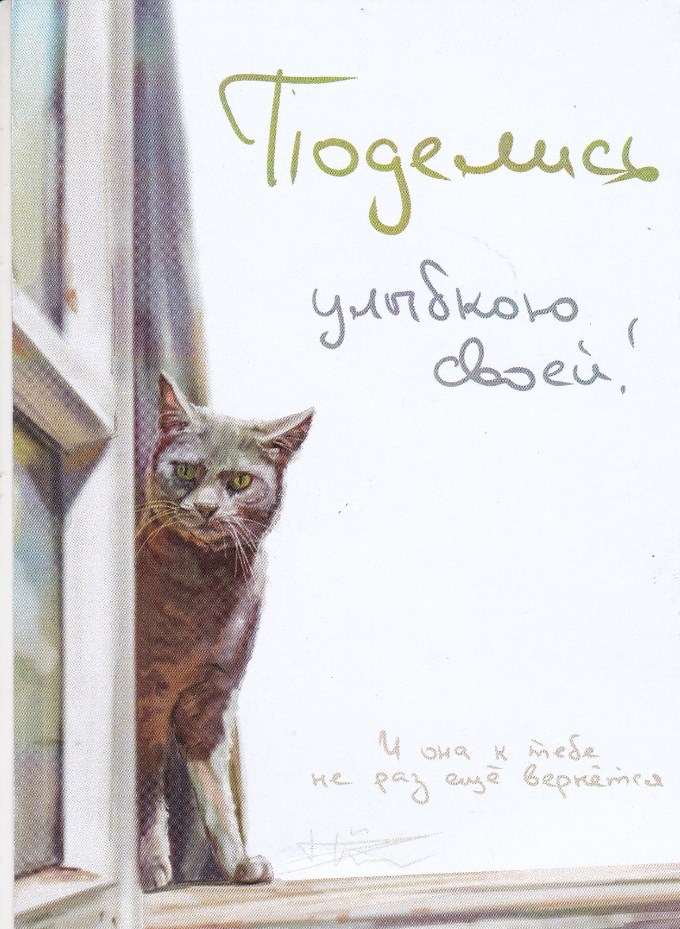 Поделись
улыбкою
своей!
И она к тебе
не раз ещё вернётся